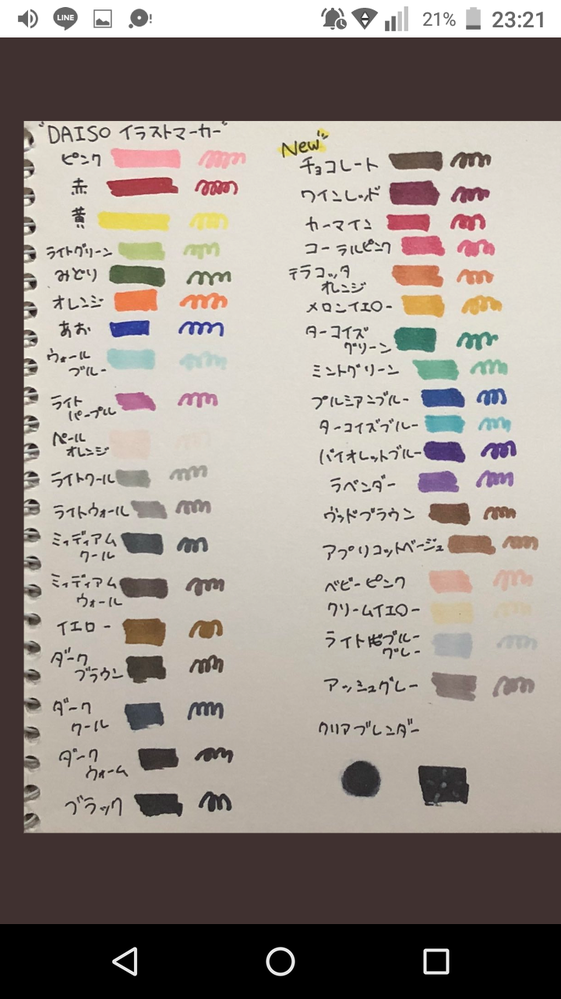 LINE
21%
23:21
"DAISO イラストマーカー"
ピンク
赤
黄
ライトグリーン
みどり
オレンジ
あお
ウォール
ブルー
ライト
パープル
ペール
オレンジ
ライトクール
ライトウォール
ミディアム
クール
ミィディアム
ウォール
イエロー
ダーク
ブラウン
ダーク
クール
ダーク
ウォーム
ブラック
New"
チョコレート
ワインレッド
カーマイン
コーラルピンク
テラコッタ
オレンジ
メロンイエロー
ターコイズ
グリーン
ミントグリーン
プルシアンブルー
ターコイズブルー
バイオレットブルー
ラベンダー
ウッドブラウン
アプリコットベージュ
ベビーピンク
クリームイエロー
ライトブルー
グレー
アッシュグレー
クリアブレンダー